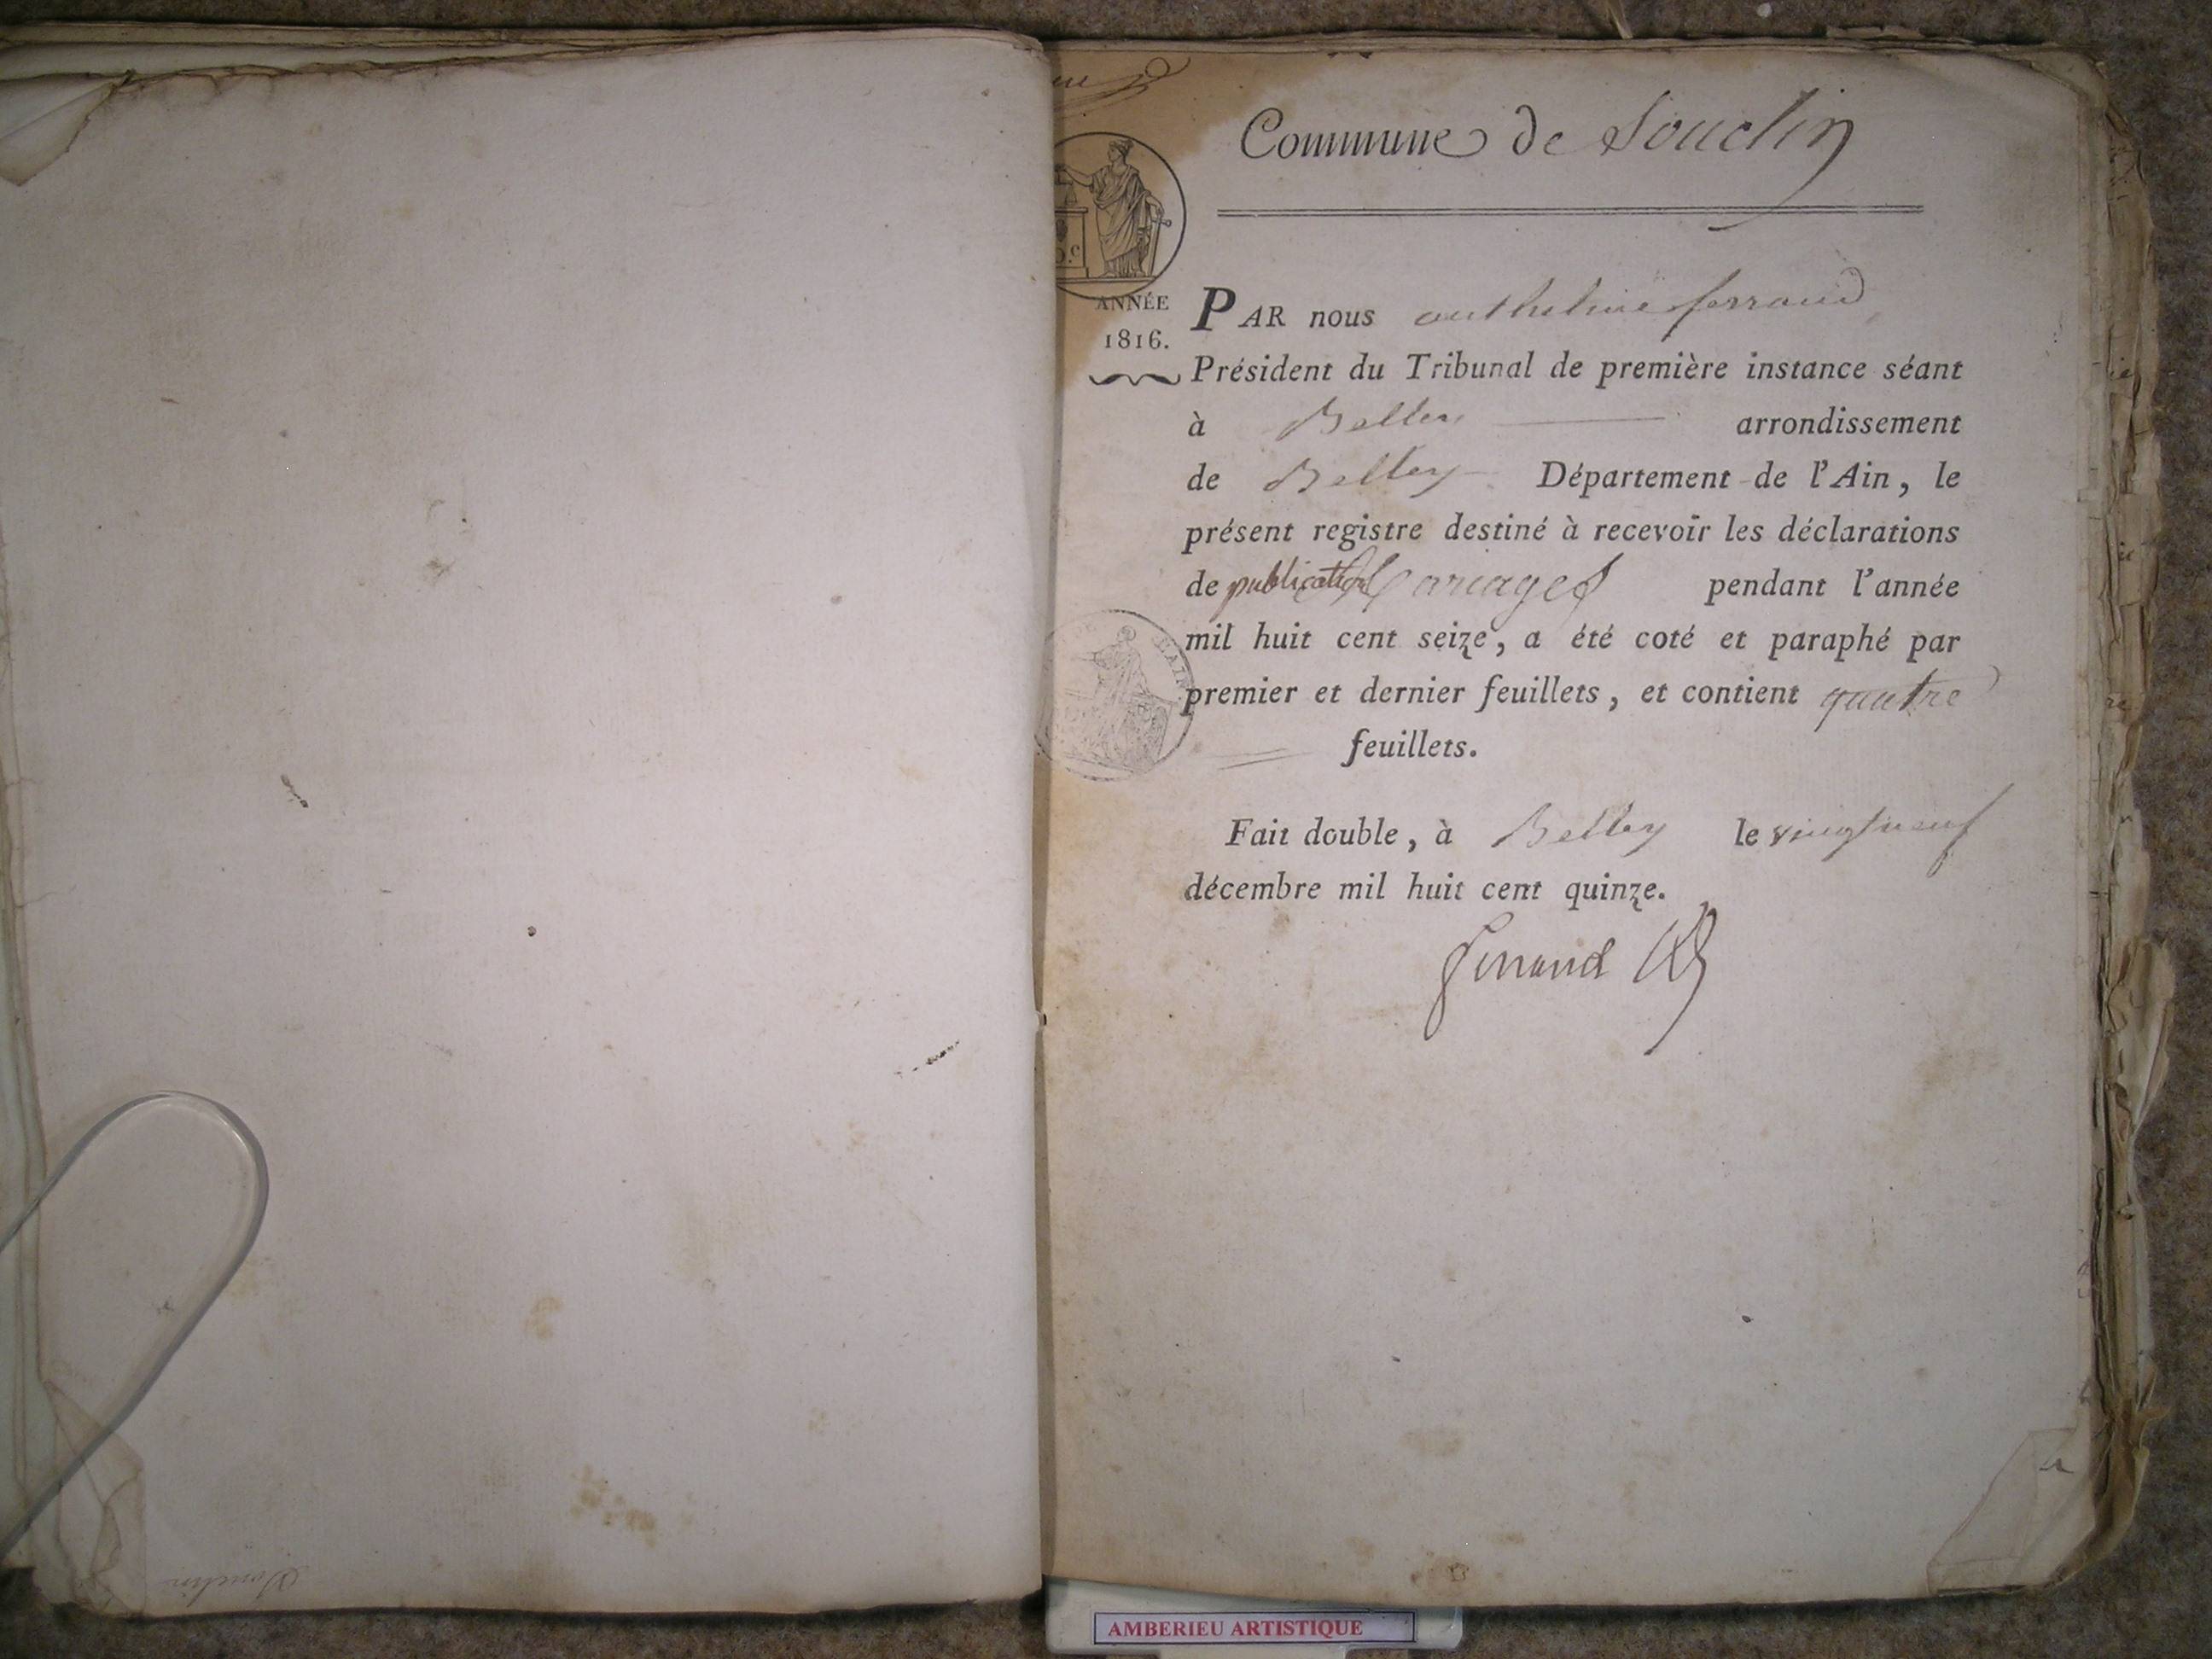 Commune de Souclin
ANNÉE
1816.
PAR nous anthelme ferrand,
Président du Tribunal de première instance séant
à Belley arrondissement
de Belley Département de l'Ain, le
présent registre destiné à recevoir les déclarations
de publication Mariages pendant l'année
mil huit cent seize, a été coté et paraphé par
premier et dernier feuillets, et contient quatre
feuillets.
Fait double, à Belley le vingt neuf
décembre mil huit cent quinze.
ferrand
Souclin
AMBERIEU ARTISTIQUE